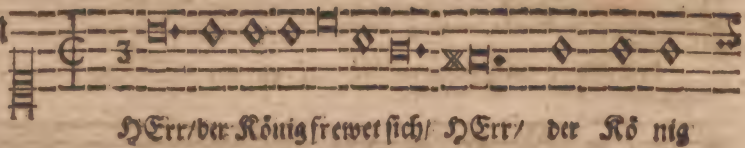 3
HErr/der König frewet sich/ HErr/ der Kö nig